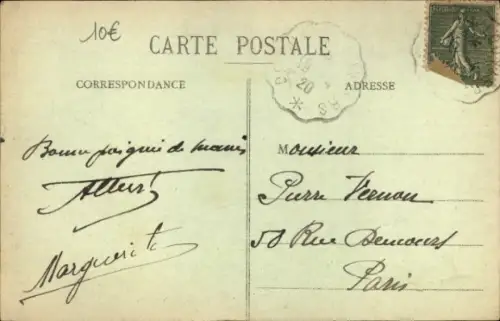 10€
CARTE POSTALE
CORRESPONDANCE
ADRESSE
20
Bonne poignée de mains
Albert
Marguerite
Monsieur
Pierre Vernon
58 Rue Demours
Paris